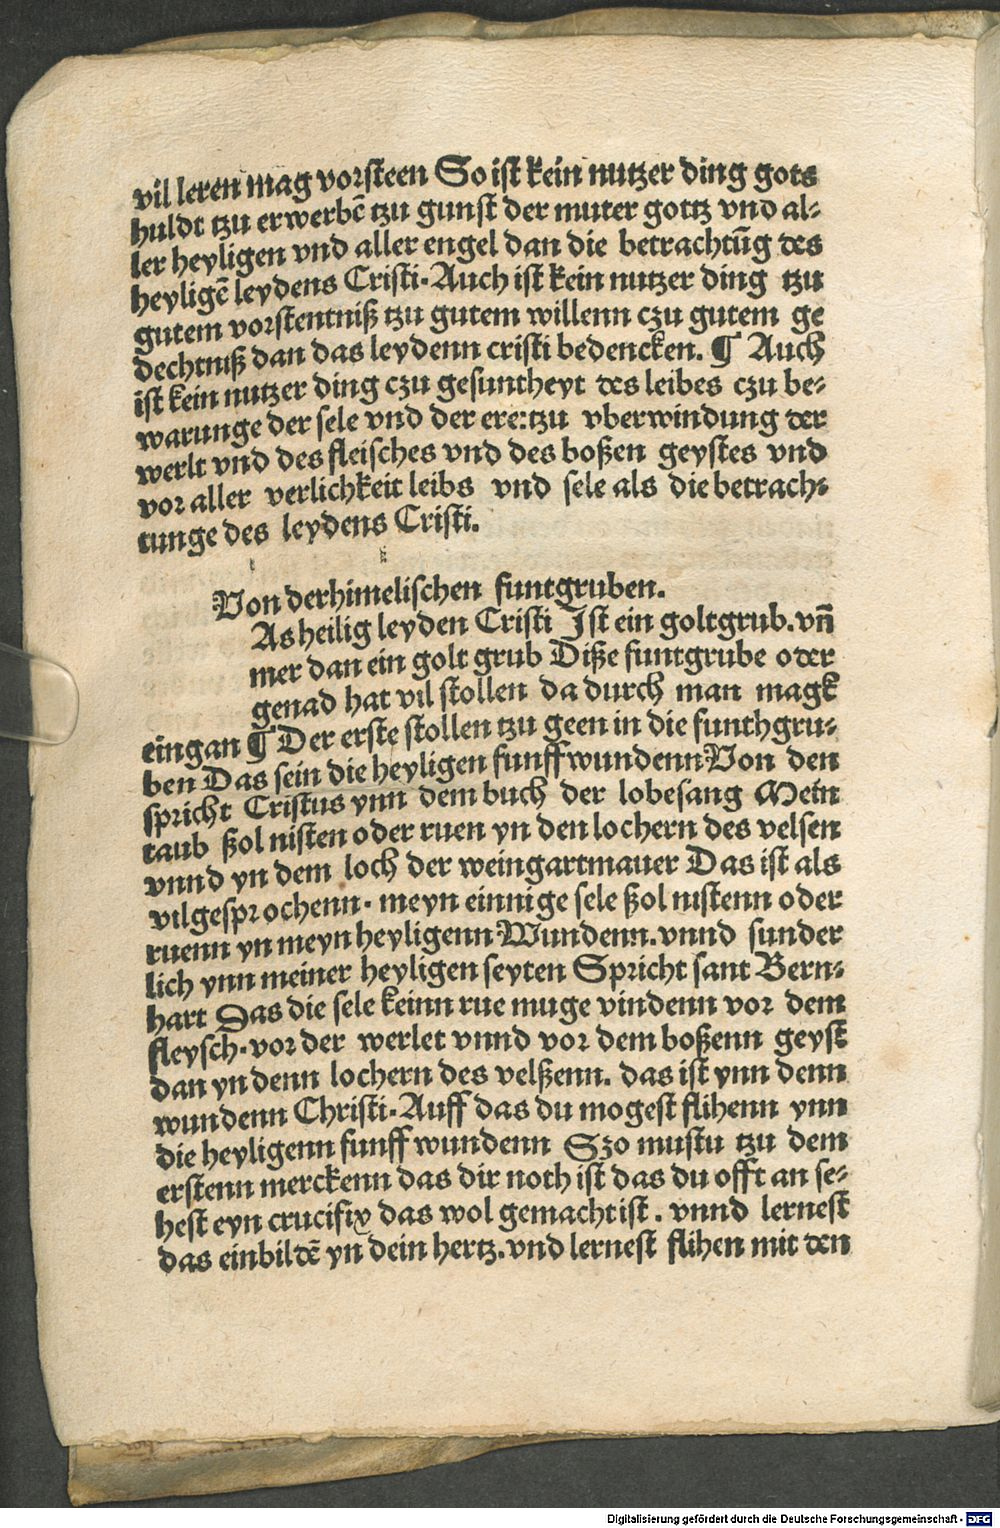 vil leren mag vorsteen So ist kein nutzer ding gots
huldt tzu erwerbē tzu gunst der muter gottz vnd al⸗
ler heyligen vnd aller engel dan die betrachtūg des
heyligē leydens Cristi. Auch ist kein nutzer ding tzu
gutem vorstentniß tzu gutem willenn czu gutem ge
dechtniß dan das leydenn cristi bedencken. ¶ Auch
ist kein nutzer ding czu gesuntheyt des leibes czu be⸗
warunge der sele vnd der ere: tzu vberwindung der
werlt vnd des fleisches vnd des boßen geystes vnd
vor aller verlichkeit leibs vnd sele als die betrach⸗
tunge des leydens Cristi.
Von der himelischen funtgruben.
As heilig leyden Cristi Ist ein goltgrub. vn̄
mer dan ein golt grub Diße funtgrube oder
genad hat vil stollen da durch man magk
eingan ¶ Der erste stollen tzu geen in die funthgru⸗
ben Das sein die heyligen funff wundenn Von den
spricht Cristus ynn dem buch der lobesang Mein
taub ßol nisten oder ruen yn den lochern des velsen
vnnd yn dem loch der weingartmauer Das ist als
vil gesprochenn. meyn einnige sele ßol nistenn oder
ruenn yn meyn heyligenn Wundenn. vnnd sunder
lich ynn meiner heyligen seyten Spricht sant Bern⸗
hart Das die sele keinn rue muge vindenn vor dem
fleysch. vor der werlet vnnd vor dem boßenn geyst
dan yn denn lochern des velßenn. das ist ynn denn
wundenn Christi. Auff das du mogest flihenn ynn
die heyligenn funff wundenn Szo mustu tzu dem
erstenn merckenn das dir noth ist das du offt an se⸗
hest eyn crucifix das wol gemacht ist. vnnd lernest
das einbildē yn dein hertz. vnd lernest flihen mit den
Digitalisierung gefördert durch die Deutsche Forschungsgemeinschaft - DFG